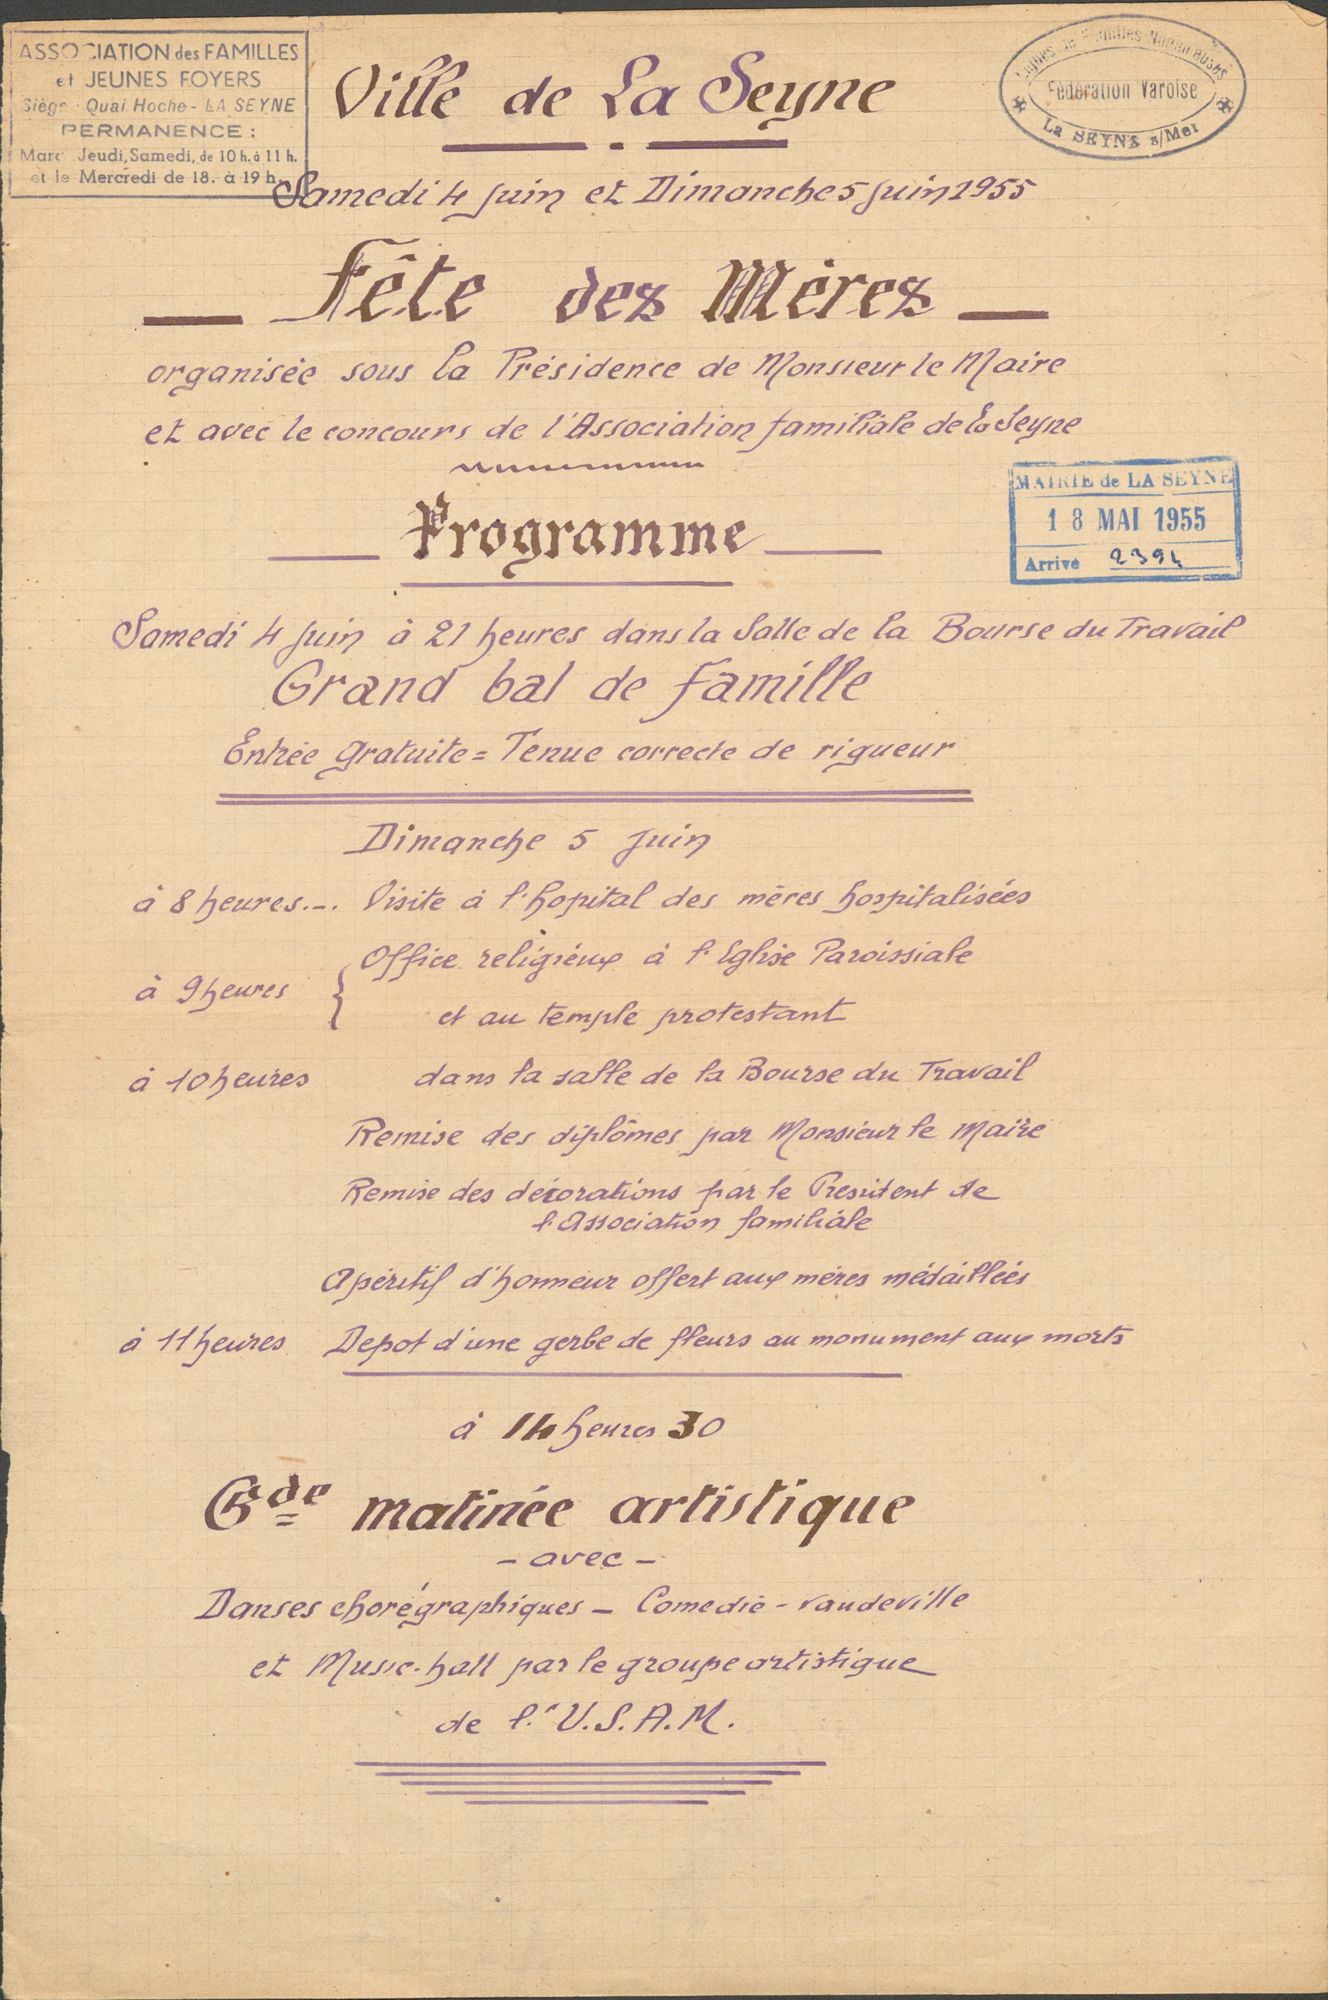 ASSOCIATION des FAMILLES
et JEUNES FOYERS
Siège : Quai Hoche - LA SEYNE
PERMANENCE :
Mard Jeudi, Samedi, de 10 h. à 11 h.
et le Mercredi de 18. à 19 h.
Familles Nombreuses
Fédération Varoise
La SEYNE s/Mer
Ville de La Seyne
Samedi 4 Juin et Dimanche 5 Juin 1955
Fête des Mères
organisée sous la Présidence de Monsieur le Maire
et avec le concours de l'Association familiale de La Seyne
MAIRIE de LA SEYNE
18 MAI 1955
Arrivé 2394
Programme
Samedi 4 Juin à 21 heures dans la Salle de la Bourse du Travail
Grand bal de famille
Entrée gratuite = Tenue correcte de rigueur
Dimanche 5 Juin
à 8 heures.-. Visite à l'hopital des mères hospitalisées
à 9 heures { Office religieux à l'Eglise Paroissiale
et au temple protestant
à 10 heures dans la salle de la Bourse du Travail
Remise des diplômes par Monsieur le Maire
Remise des décorations par le President de
l'Association familiale
Apéritif d'honneur offert aux mères médaillées
à 11 heures Depot d'une gerbe de fleurs au monument aux morts
à 14 heures 30
Gde matinée artistique
- avec -
Danses chorégraphiques - Comedie - vaudeville
et Music-hall par le groupe artistique
de l'U.S.A.M.